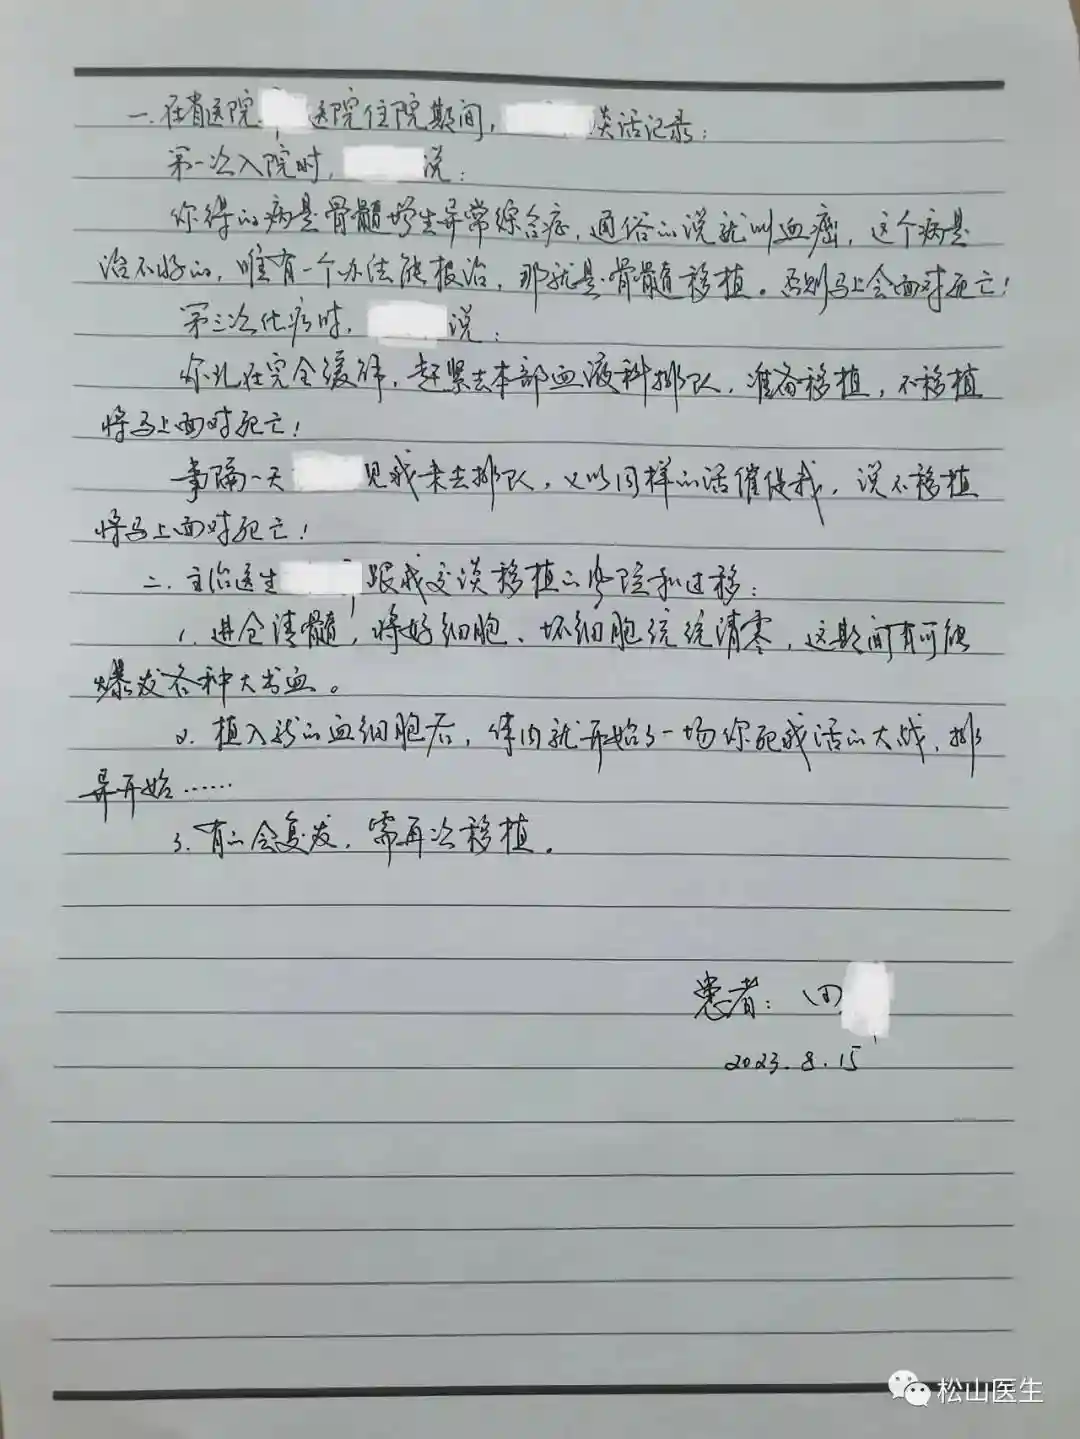 一.在省医院 医院住院期间, 谈话记录:
第一次入院时, 说:
你得的病是骨髓增生异常综合症,通俗的说就叫血癌,这个病是
治不好的,唯有一个办法能根治,那就是骨髓移植。否则马上会面对死亡!
第三次化疗时, 说:
你现在完全缓解,赶紧去本部血液科排队,准备移植,不移植
将马上面对死亡!
事隔一天 见我未去排队,又以同样的话催促我,说不移植
将马上面对死亡!
二.主治医生 跟我交谈移植的 和过移:
1.进仓清髓,将好细胞、坏细胞统统清零,这期间有可能
爆发各种大出血。
2.植入新的血细胞后,体内就开始了一场你死我活的大战,排
异开始……
3.有的会复发,需再次移植。
患者:田
2023.8.15
松山医生